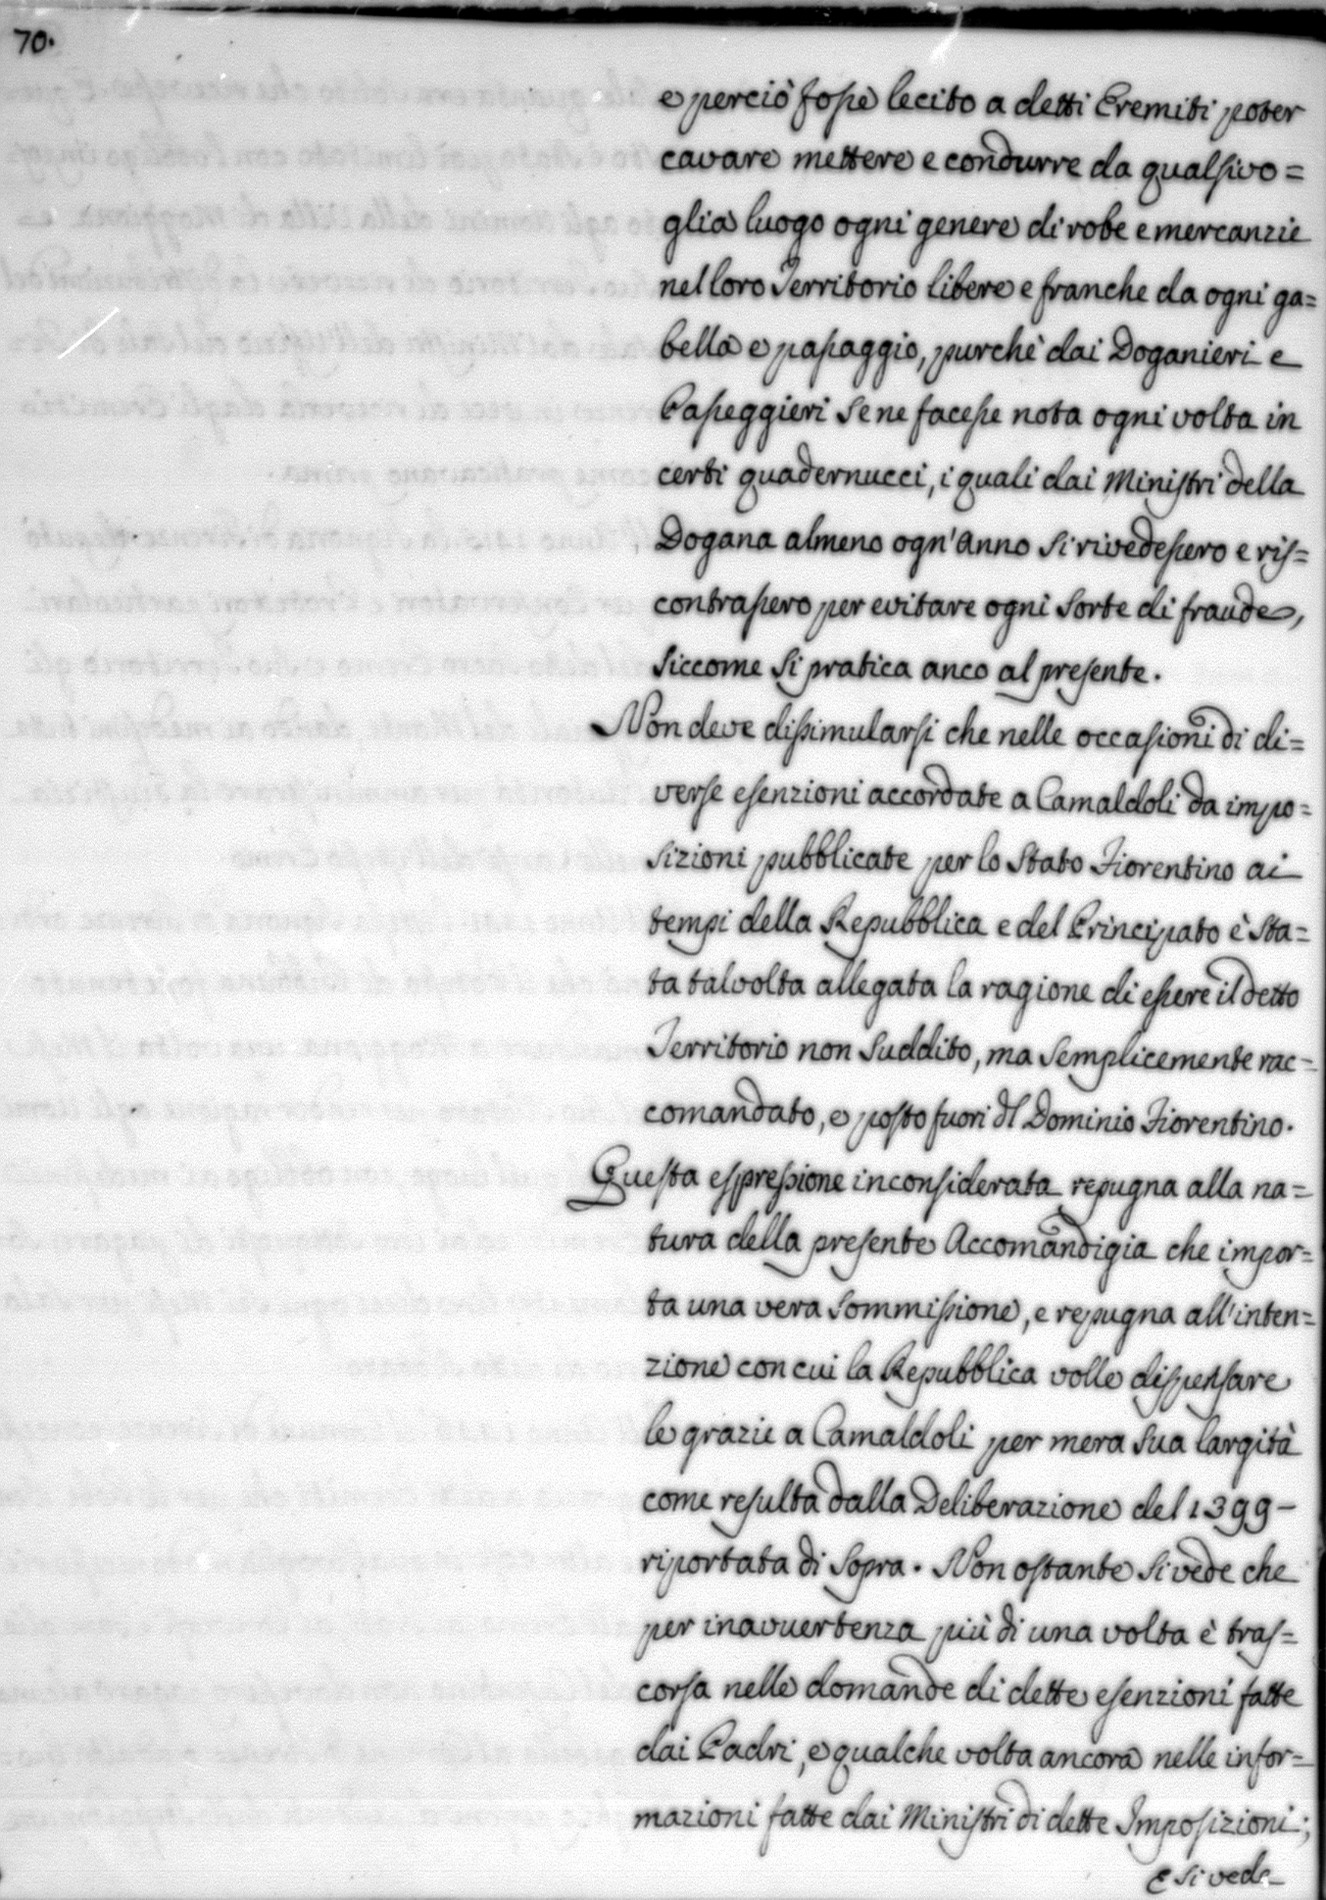 70.
e perciò fosse lecito a detti Eremiti poter
cavare mettere e condurre da qualsivo=
glia luogo ogni genere di robe e mercanzie
nel loro Territorio libere e franche da ogni ga=
bella e passaggio, purchè dai Doganieri e
Passeggieri se ne facesse nota ogni volta in
certi quadernucci, i quali dai Ministri della
Dogana almeno ogn'Anno si rivedessero e ris=
contrassero per evitare ogni sorte di fraude,
siccome si pratica anco al presente.
Non deve dissimularsi che nelle occasioni di di=
verse esenzioni accordate a Camaldoli da impo=
sizioni pubblicate per lo Stato Fiorentino ai
tempi della Repubblica e del Principato è sta=
ta talvolta allegata la ragione di essere il detto
Territorio non suddito, ma semplicemente rac=
comandato, e posto fuori dl Dominio Fiorentino.
Questa espressione inconsiderata repugna alla na=
tura della presente Accomandigia che impor=
ta una vera sommissione, e repugna all'inten=
zione con cui la Repubblica volle dispensare
le grazie a Camaldoli per mera sua largità
come resulta dalla Deliberazione del 1399-
riportata di sopra. Non ostante si vede che
per inavvertenza più di una volta è tras=
corsa nelle domande di dette esenzioni fatte
dai Padri, e qualche volta ancora nelle infor=
mazioni fatte dai Ministri di dette Imposizioni;
E si vede